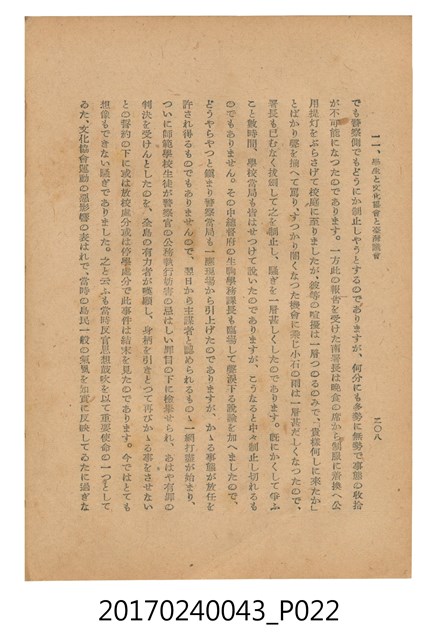 二〇八
でも警察側でもどうにか制止しやうとするのでありますが、何分にも多勢に無勢で事態の收拾
が不可能になつたのであります。一方此の報告を受けた南署長は晩食の席から制服に着換へ公
用提灯をぶらさげて校庭に至りましたが、彼等の喧擾は一層つのるのみで、「貴樣何しに來たか」
とばかり署を捕へて罵り、すつかり闇くなつた機會に乘じ小石の雨は一層甚だしくなつたので、
署長も已むなく拔劍して之を制止し、騷ぎを一層甚しくしたのであります。既にかくして爭ふ
こと數時間、學校當局も皆はせつけて說いたのでありますが、こうなると中々制止し切れるも
のでもありません。その中總督府の生駒學務課長も臨場して聲淚下る說諭を加へましたので、
どうやらやつと鎭まり警察當局も一應現場から引上げたのでありますが、かゝる事態が放任を
許され得るものでもありませんので、翌日から主謀者と認められるものゝ一網打盡が始まり、
つひに師範學校生徒が警察官の公務執行妨害の忌はしい罪質の下に檢擧せられ、あはや有罪の
判決を受けんとしたのを、全島の有力者が嘆願し、身柄を引きとつて再びかゝる事をさせない
との誓約の下に或は放校處分或は停學處分で此事件は結末を見たのであります。今ではとても
想像もできない騷ぎでありました。之と云ふも當時反官思想鼓吹を以て重要使命の一つとして
ゐた、文化協會運動の惡影響の表はれで、當時の島民一般の氣風を如實に反映してゐたに過ぎな
20170240043_P022